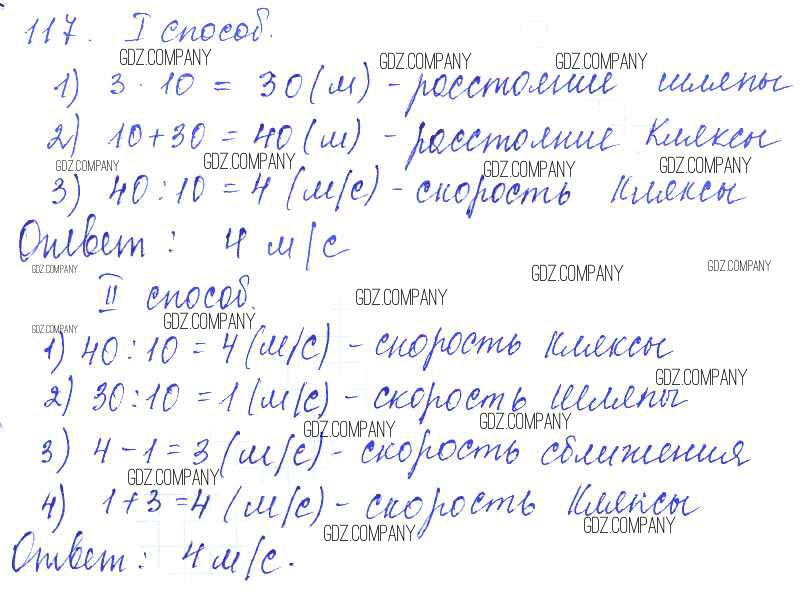 117. I способ.
GDZ.COMPANY
GDZ.COMPANY GDZ.COMPANY
1) 3 · 10 = 30 (м) - расстояние шляпы
2) 10 + 30 = 40 (м) - расстояние Кляксы
GDZ.COMPANY GDZ.COMPANY GDZ.COMPANY GDZ.COMPANY
3) 40 : 10 = 4 (м/с) - скорость Кляксы
Ответ: 4 м/с
GDZ.COMPANY GDZ.COMPANY GDZ.COMPANY
II способ.
GDZ.COMPANY
GDZ.COMPANY GDZ.COMPANY
1) 40 : 10 = 4 (м/с) - скорость Кляксы
GDZ.COMPANY
2) 30 : 10 = 1 (м/с) - скорость Шляпы
GDZ.COMPANY GDZ.COMPANY
3) 4 - 1 = 3 (м/с) - скорость сближения
GDZ.COMPANY
4) 1 + 3 = 4 (м/с) - скорость Кляксы
GDZ.COMPANY GDZ.COMPANY
Ответ: 4 м/с.